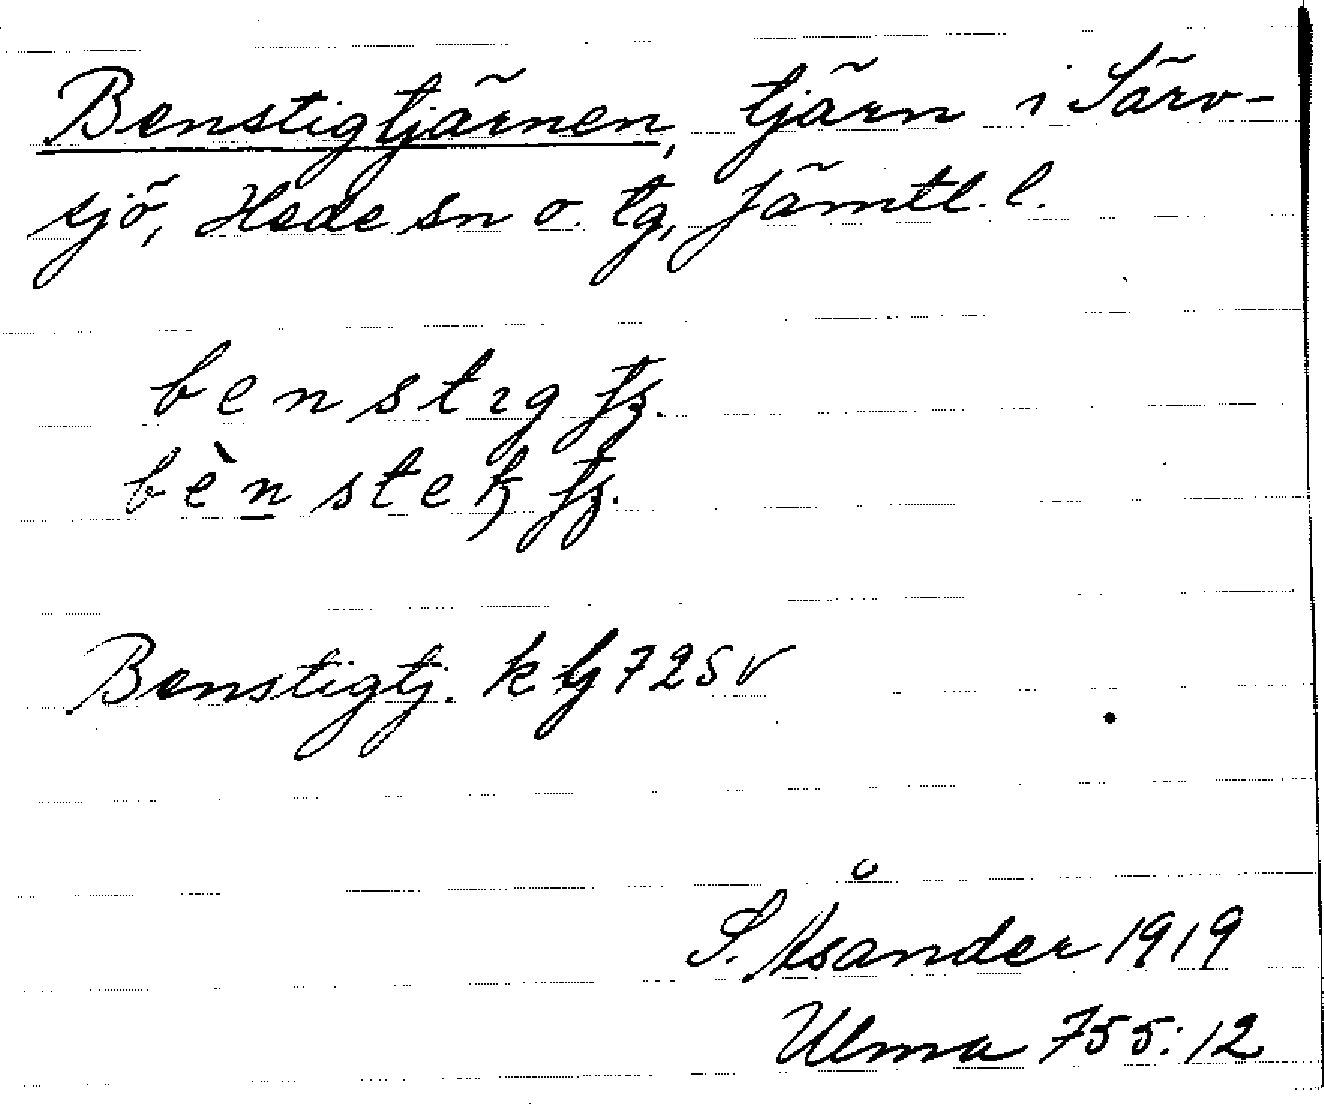 Benstigtjärnen, tjärn i Särv-
sjö, Hede sn o. tg, Jämtl. l.
benstıg
bènste
Benstigtj. k bl 72 SV
S. Åsander 1919
Ulma 755:12